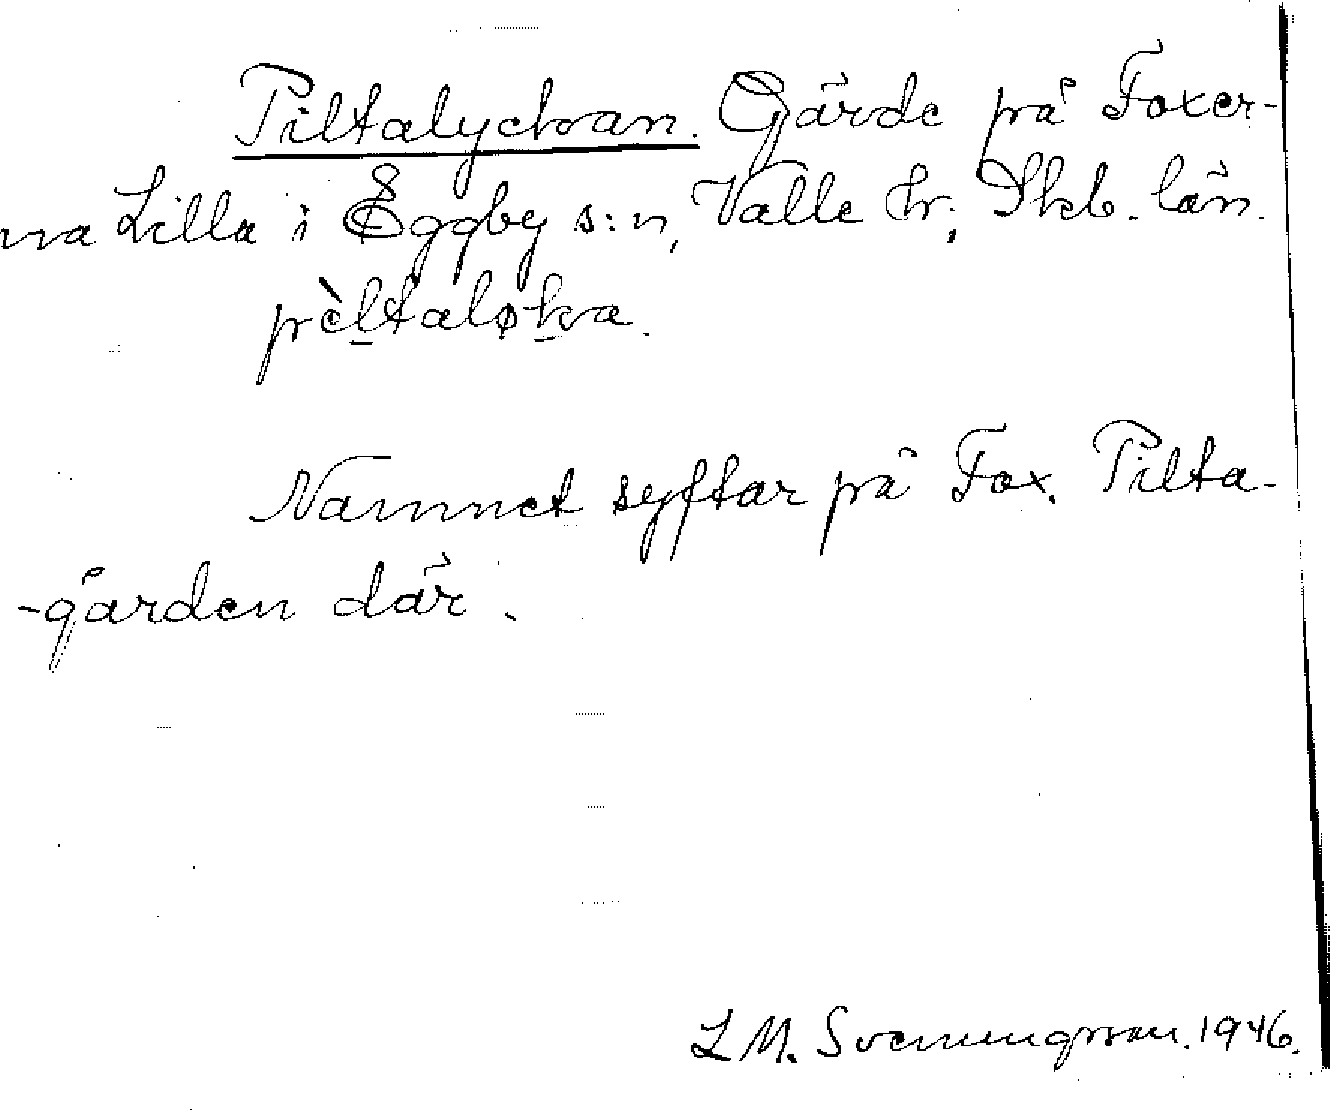 Piltalyckan. Gärde på Foxer-
na Lilla i Eggby s:n, Valle hr; Skb. län.
pèltaløka.
Namnet syftar på Fox. Pilta-
-gården där.
L M. Svenungsson. 1946.